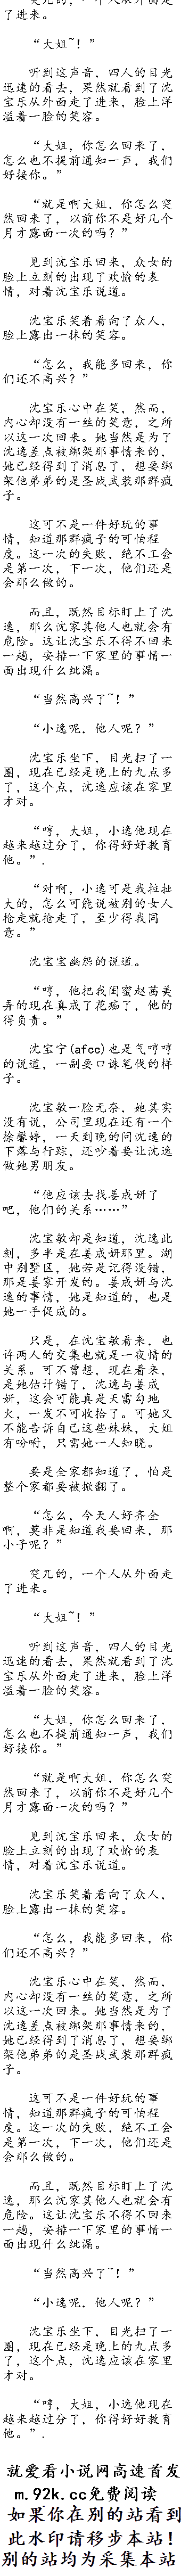 突兀的，一个人从外面走
了进来。
“大姐~！”
听到这声音，四人的目光
迅速的看去，果然就看到了沈
宝乐从外面走了进来，脸上洋
溢着一脸的笑容。
“大姐，你怎么回来了，
怎么也不提前通知一声，我们
好接你。”
“就是啊大姐，你怎么突
然回来了，以前你不是好几个
月才露面一次的吗？”
见到沈宝乐回来，众女的
脸上立刻的出现了欢愉的表
情，对着沈宝乐说道。
沈宝乐笑着看向了众人，
脸上露出一抹的笑容。
“怎么，我能多回来，你
们还不高兴？”
沈宝乐心中在笑，然而，
内心却没有一丝的笑意，之所
以这一次回来。她当然是为了
沈逸差点被绑架那事情来的，
她已经得到了消息了，想要绑
架他弟弟的是圣战武装那群疯
子。
这可不是一件好玩的事
情，知道那群疯子的可怕程
度。这一次的失败，绝不工会
是第一次，下一次，他们还是
会那么做的。
而且，既然目标盯上了沈
逸，那么沈家其他人也就会有
危险。这让沈宝乐不得不回来
一趟，安排一下家里的事情一
面出现什么纰漏。
“当然高兴了~！”
“小逸呢，他人呢？”
沈宝乐坐下，目光扫了一
圈，现在已经是晚上的九点多
了，这个点，沈逸应该在家里
才对。
“哼，大姐，小逸他现在
越来越过分了，你得好好教育
他。”.
“对啊，小逸可是我拉扯
大的，怎么可能说被别的女人
抢走就抢走了，至少得我同
意。”
沈宝宝幽怨的说道。
“哼，他把我闺蜜赵茜美
弄的现在真成了花痴了，他的
得负责。”
沈宝宁(afcc)也是气哼哼
的说道，一副要口诛笔伐的样
子。
沈宝敏一脸无奈，她其实
没有说，公司里现在还有一个
徐馨婷，一天到晚的问沈逸的
下落与行踪，还吵着要让沈逸
做她男朋友。
“他应该去找姜成妍了
吧，他们的关系……”
沈宝敏却是知道，沈逸此
刻，多半是在姜成妍那里。湖
中别墅区，她若是记得没错，
那是姜家开发的。姜成妍与沈
逸的事情，她是知道的，也是
她一手促成的。
只是，在沈宝敏看来，也
许两人的交集也就是一夜情的
关系。可不曾想，现在看来，
是她估计错了，沈逸与姜成
妍，这会可能真是天雷勾地
火，一发不可收拾了。可她又
不能告诉自己这些妹妹，大姐
有吩咐，只需她一人知晓。
要是全家都知道了，怕是
整个家都要被掀翻了。
“怎么，今天人好齐全
啊，莫非是知道我要回来，那
小子呢？”
突兀的，一个人从外面走
了进来。
“大姐~！”
听到这声音，四人的目光
迅速的看去，果然就看到了沈
宝乐从外面走了进来，脸上洋
溢着一脸的笑容。
“大姐，你怎么回来了，
怎么也不提前通知一声，我们
好接你。”
“就是啊大姐，你怎么突
然回来了，以前你不是好几个
月才露面一次的吗？”
见到沈宝乐回来，众女的
脸上立刻的出现了欢愉的表
情，对着沈宝乐说道。
沈宝乐笑着看向了众人，
脸上露出一抹的笑容。
“怎么，我能多回来，你
们还不高兴？”
沈宝乐心中在笑，然而，
内心却没有一丝的笑意，之所
以这一次回来。她当然是为了
沈逸差点被绑架那事情来的，
她已经得到了消息了，想要绑
架他弟弟的是圣战武装那群疯
子。
这可不是一件好玩的事
情，知道那群疯子的可怕程
度。这一次的失败，绝不工会
是第一次，下一次，他们还是
会那么做的。
而且，既然目标盯上了沈
逸，那么沈家其他人也就会有
危险。这让沈宝乐不得不回来
一趟，安排一下家里的事情一
面出现什么纰漏。
“当然高兴了~！”
“小逸呢，他人呢？”
沈宝乐坐下，目光扫了一
圈，现在已经是晚上的九点多
了，这个点，沈逸应该在家里
才对。
“哼，大姐，小逸他现在
越来越过分了，你得好好教育
他。”.
就爱看小说网高速首发
m.92k.cc免费阅读
如果你在别的站看到
此水印请移步本站！
别的站均为采集本站